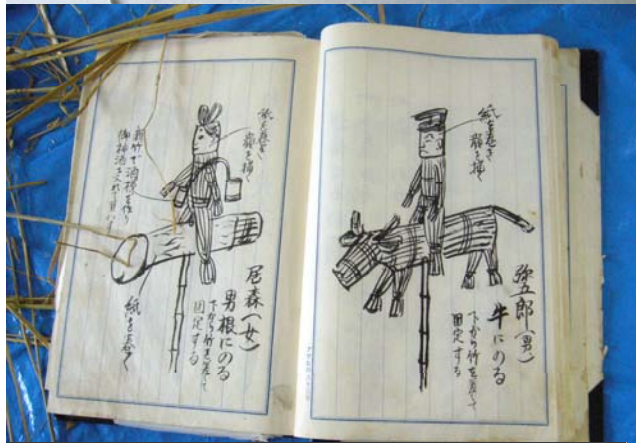 紙を巻き
顔を描く
弥五郎(男)
牛にのる
下から竹を差して
固定する
紙を巻き
顔を描く
青竹で酒樽を作り
紙を巻く
尼森(女)
男根にのる
下から竹を差して
固定する